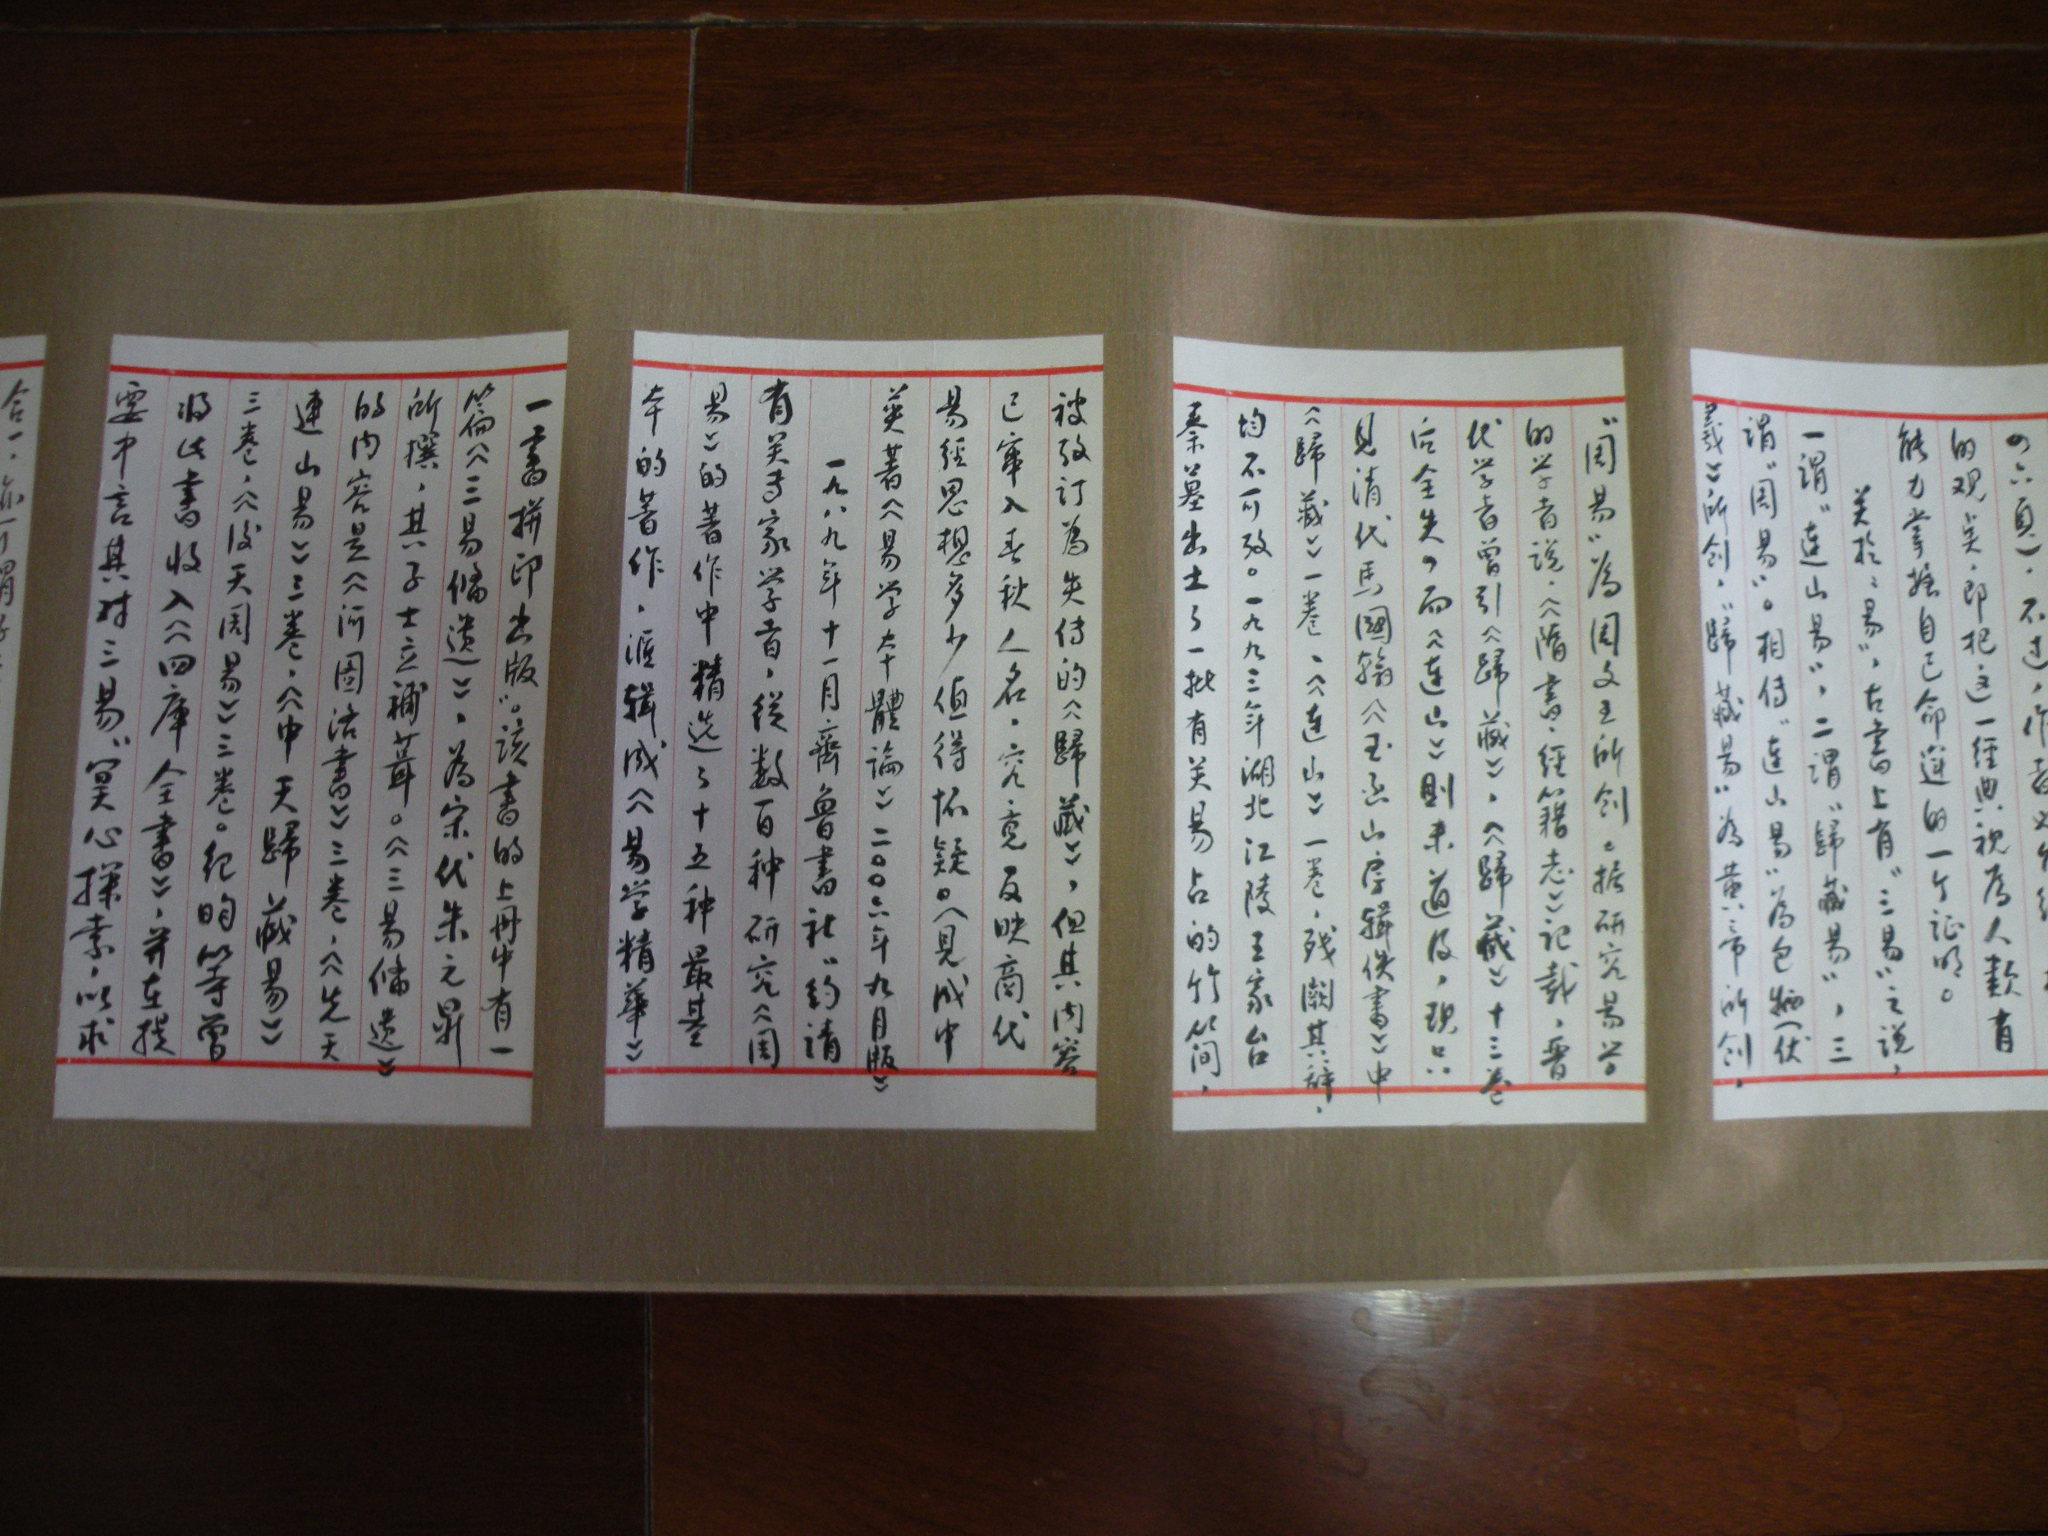 四六頁)，不过，作者
的观点，即把这一經典視为人類有
能力掌握自己命運的一个证明。
关於"易"，古書上有"三易"之說，
一谓"连山易"，二谓"歸藏易"，三
谓"周易"。相传"连山易"為包犧(伏
羲)所创，"歸藏易"為黄帝所创，
"周易"為周文王所创。据研究易学
的学者说，《隋書·經籍志》记载，晋
代学者曾引《歸藏》，《歸藏》十三卷
后全失，而《连山》则未道及，現只
見清代馬國翰《玉函山房辑佚書》中
《歸藏》一卷、《连山》一卷，残闕其辞，
均不可攷。一九九三年湖北江陵王家台
秦墓出土了一批有关易占的竹简，
被攷订為失传的《歸藏》，但其内容
已窜入春秋人名，究竟反映商代
易經思想多少值得怀疑。(見成中
英著《易学本體論》二〇〇六年九月版)
一九八九年十一月齊鲁書社"約請
有关专家学者，從数百种研究《周
易》的著作中精选了十五种最基
本的著作，滙辑成《易学精華》
一書拼印出版"。该書的上册中有一
篇《三易備遗》，為宋代朱元昇
所撰，其子士立補葺。《三易備遗》
的内容是《河图洛書》三卷，《先天
連山易》三卷，《中天歸藏易》
三卷，《後天周易》三卷。纪昀等曾
将此書收入《四庫全書》，并在提
要中言其对三易"冥心探索，以求
合一，亦可谓